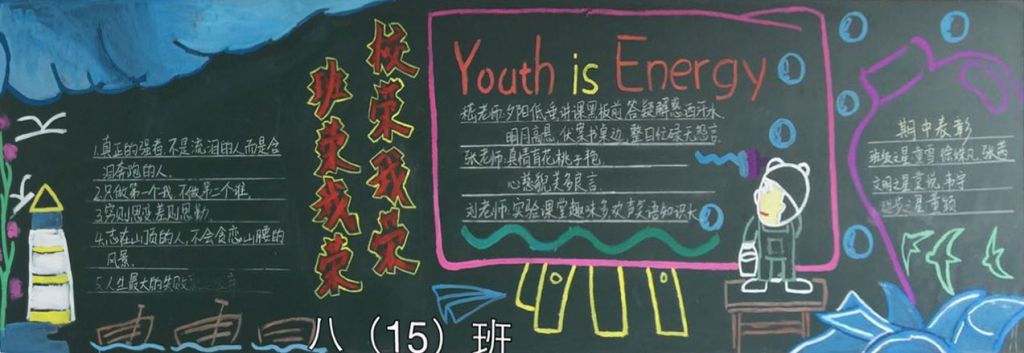 1.真正的强者,不是流泪的人,而是含
泪奔跑的人.
2.只做第一个我,不做第二个谁.
3.穷则思变,差则思勤.
4.志在山顶的人,不会贪恋山腰的
风景.
5.人生最大的失败
校荣我荣
班荣我荣
Youth is Energy
老师:夕阳低垂讲课黑板前,答疑解惑
明月高悬,伏案书桌边,整日忙碌无怨言.
张老师:真情育花桃子艳,
心慈貌美多良言.
刘老师:实验课堂趣味多,欢声笑语知识长
期中表彰
班级之星:童雪
文明之星
之星:童颖
八（15）班